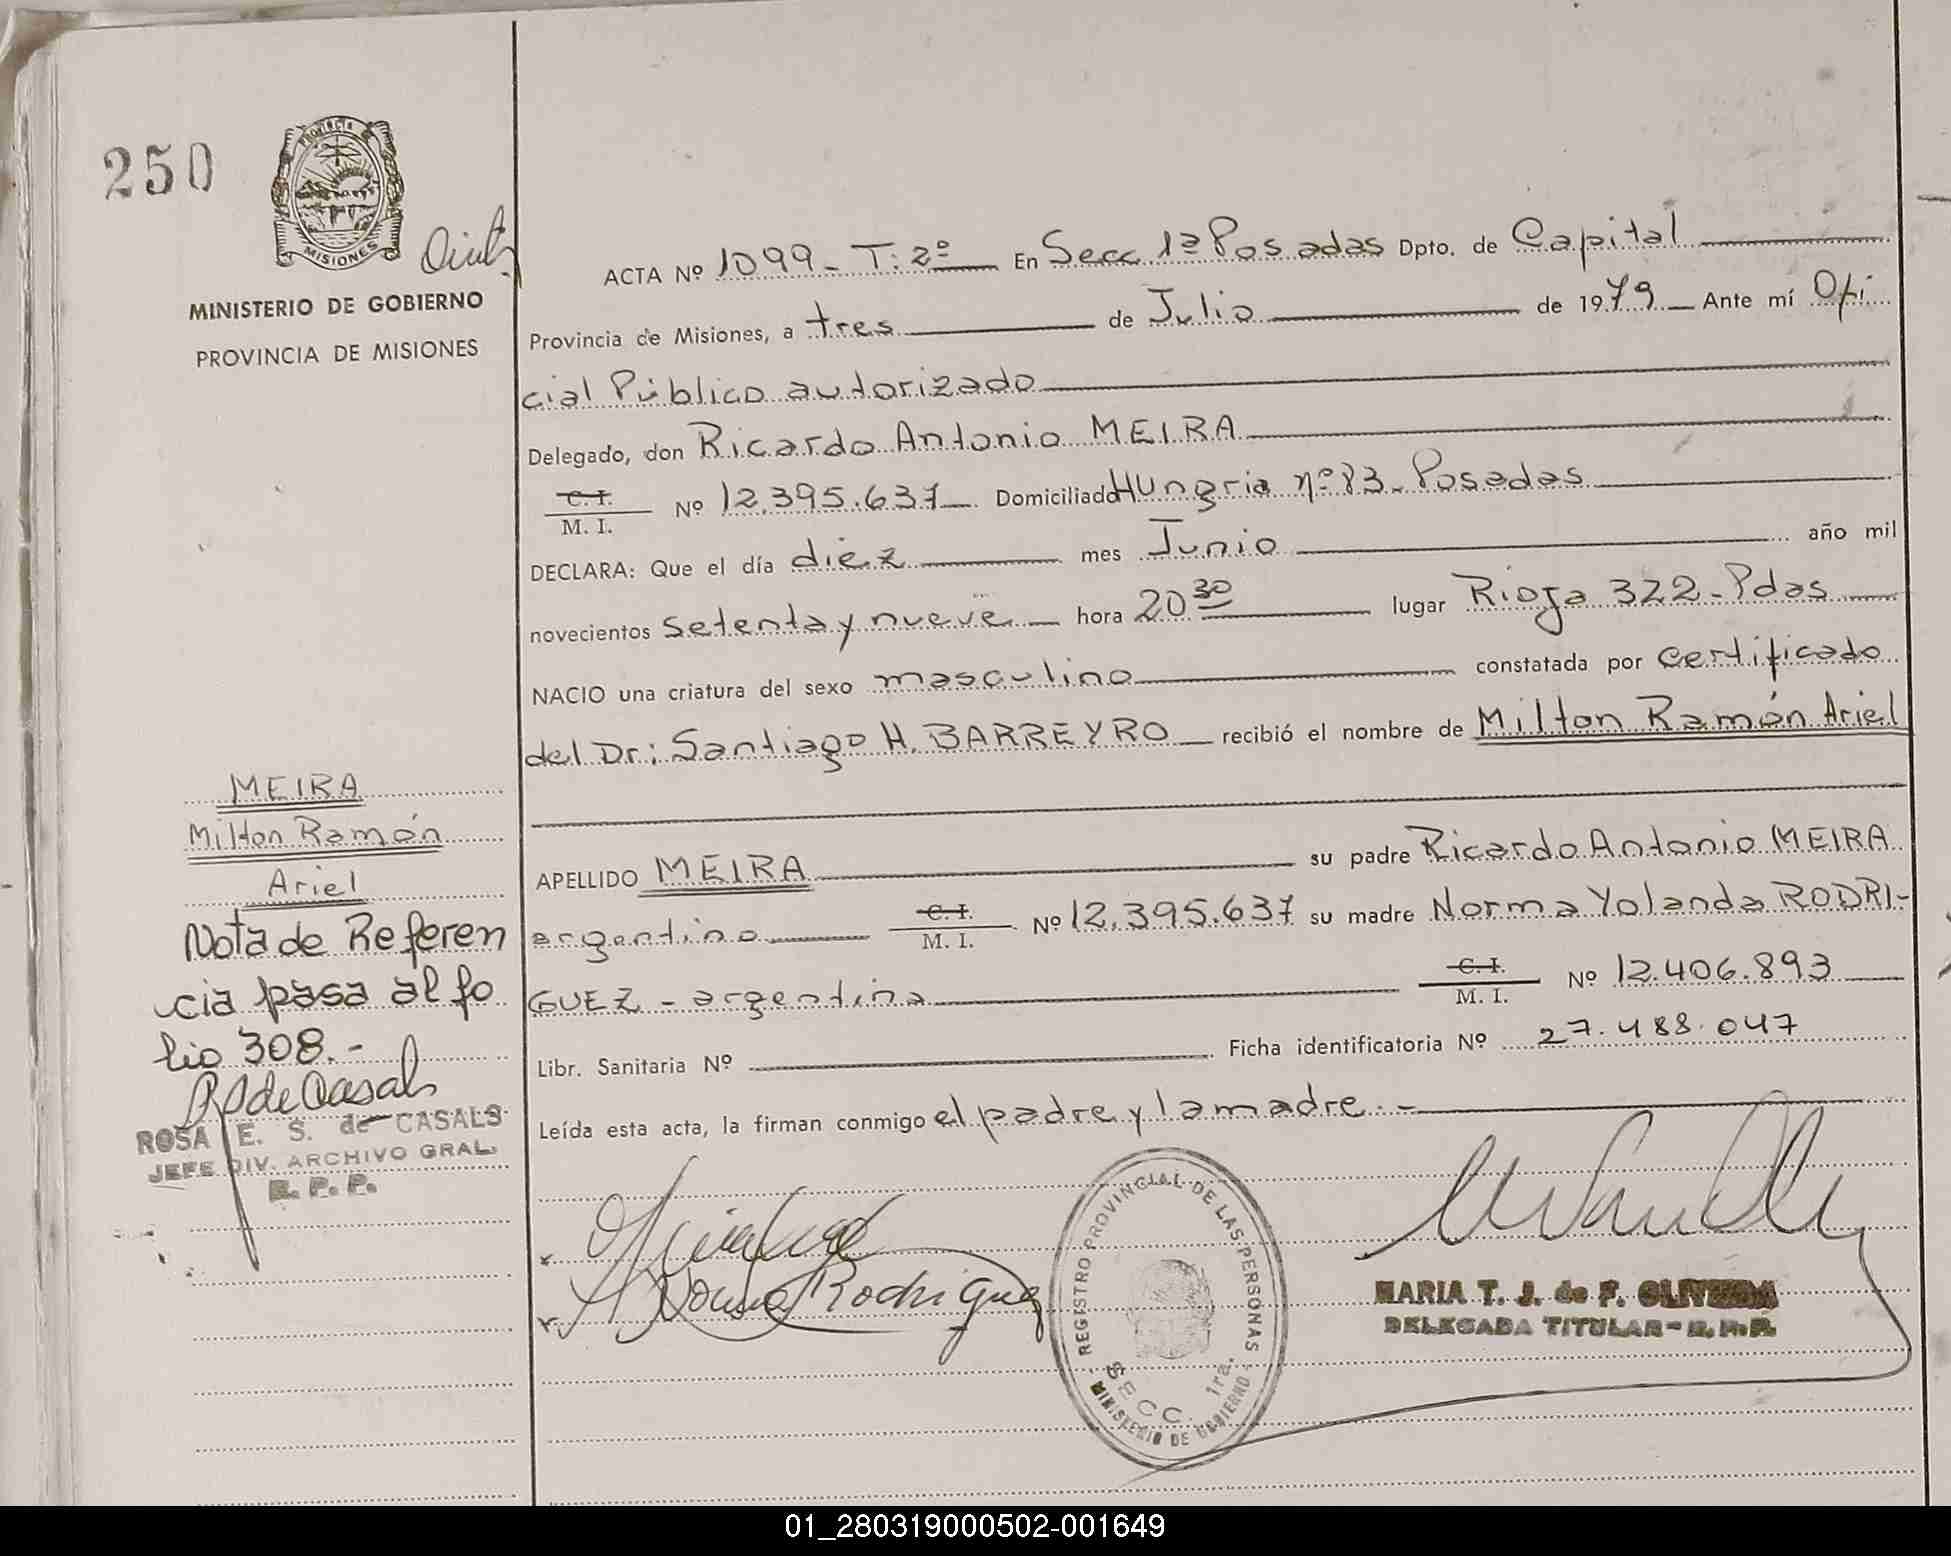 250
PROVINCIA DE
MISIONES
MINISTERIO DE GOBIERNO
PROVINCIA DE MISIONES
ACTA Nº 1099 - T: 2º En Secc 1ª Posadas Dpto. de Capital
Provincia de Misiones, a tres de Julio de 1979 Ante mí Ofi
cial Público autorizado
Delegado, don Ricardo Antonio MEIRA
C. I.
M. I. Nº 12.395.637 Domiciliado Hungria nº 83 - Posadas
DECLARA: Que el día diez mes Junio año mil
novecientos setenta y nueve hora 20 30 lugar Rioja 322 - Pdas
NACIO una criatura del sexo masculino constatada por certificado
del Dr: Santiago H. BARREYRO recibió el nombre de Milton Ramón Ariel
APELLIDO MEIRA su padre Ricardo Antonio MEIRA
argentino C. I. M. I. Nº 12.395.637 su madre Norma Yolanda RODRI-
GUEZ - argentina C. I. M. I. Nº 12.406.893
Libr. Sanitaria Nº Ficha identificatoria Nº 27.488.047
Leída esta acta, la firman conmigo el padre y la madre. -
MEIRA
Milton Ramón
Ariel
Nota de Referen
cia pasa al fo
lio 308.-
RSdeCasals
ROSA E. S. de CASALS
JEFE DIV. ARCHIVO GRAL.
R. P. P.
Norma Rodriguez
REGISTRO PROVINCIAL DE LAS PERSONAS
SECC. 1ra.
MINISTERIO DE GOBIERNO
MARIA T. J. de F. OLIVEIRA
DELEGADA TITULAR - R. P. P.
01_280319000502-001649